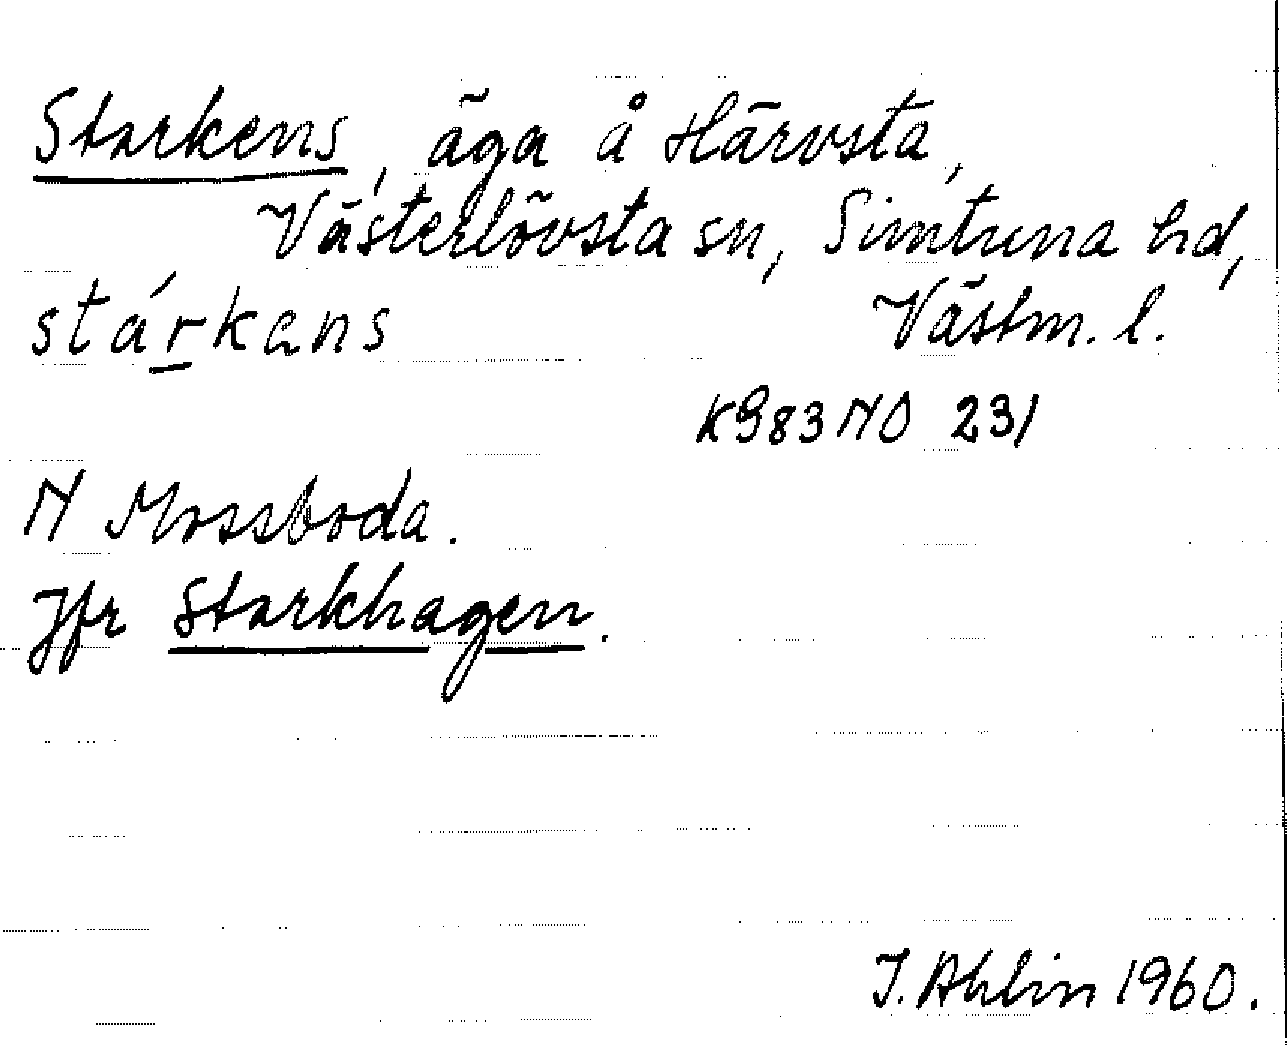 Starkens, äga å Härvsta,
Västerlövsta sn, Simtuna hd,
stárkens Västm. l.
K983 NO 231
N Mossboda.
Jfr Starkhagen.
J. Ahlin 1960.